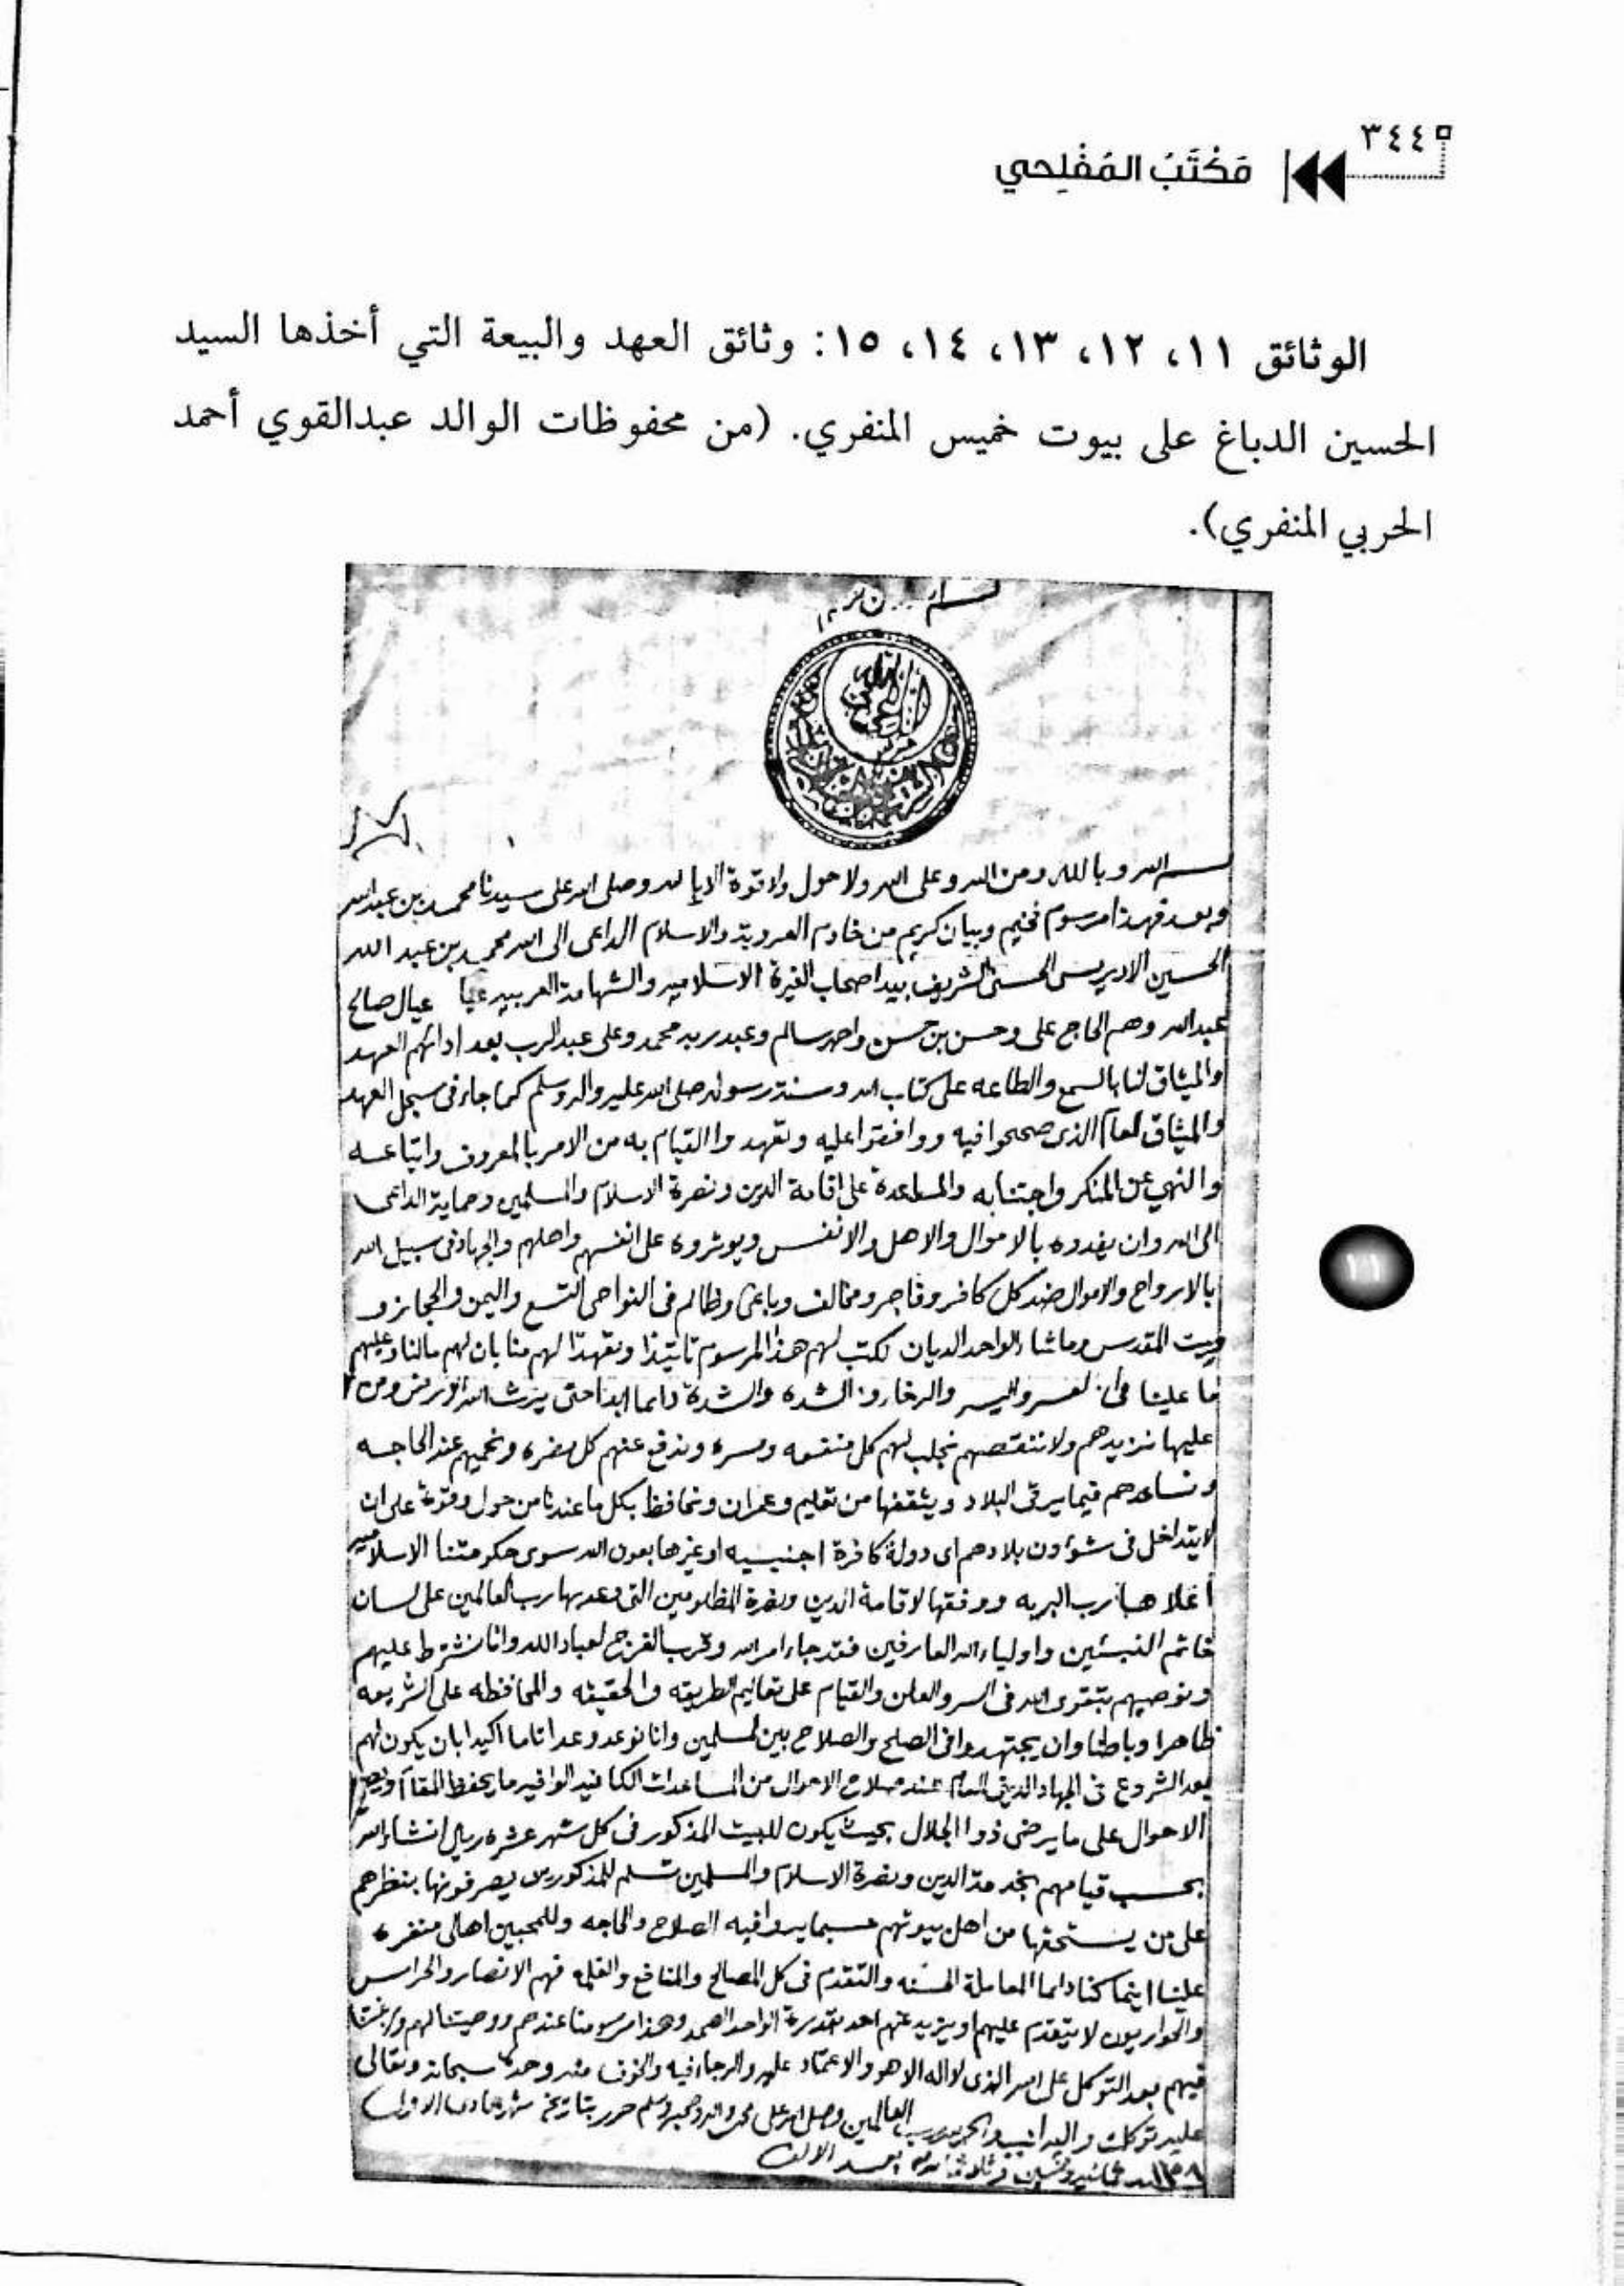 ٣٤٤
مَكْتَبُ المُفْلِحي
الوثائق ١١، ١٢، ١٣، ١٤، ١٥: وثائق العهد والبيعة التي أخذها السيد
الحسين الدباغ على بيوت خميس المنفري. (من محفوظات الوالد عبدالقوي أحمد
الحربي المنفري).
بسم الله وبالله ومن الله وعلى الله ولا حول ولا قوة الا بالله وصلى الله على سيدنا محمد بن عبدالله
وبعد فهذا مرسوم فخيم وبيان كريم من خادم العروبة والاسلام الداعى الى الله محمد بن عبد الله
الحسين الادريسى الحسنى الشريف بيد اصحاب الغيرة الاسلاميه والشهامة العربيه عيال صالح
عبدالله وهم الحاج على وحسن بن حسن واحمد سالم وعبدربه محمد وعلى عبدالرب بعد ادائهم العهد
والميثاق لنا بالسمع والطاعه على كتاب الله وسنة رسوله صلى الله عليه واله وسلم كما جاء فى سجل العهد
والميثاق العام الذى صححوا فيه ووافقوا عليه وتعهدوا القيام به من الامر بالمعروف واتباعه
والنهي عن المنكر واجتنابه والمساعدة على اقامة الدين ونصرة الاسلام والمسلمين وحماية الداعى
الى الله وان يفدوه بالاموال والاهل والانفس ويوثروه على انفسهم واهلهم والجهاد فى سبيل الله
بالارواح والاموال ضد كل كافر وفاجر ومخالف وباغى وظالم فى النواحى التسع واليمن والحجاز و
وبيت المقدس وماشاء الواحد الديان لكتب لهم هذا المرسوم تأييدا وتعهدا لهم منا بان لهم مالنا وعليهم
ما علينا فى العسر واليسر والرخاء والشده والشدة دايما ابدا حتى يرث الله الارض ومن
عليها نزيدهم ولا ننقصهم نجلب لهم كل منفعه ومسره وندفع عنهم كل مضره ونحميهم عند الحاجه
ونساعدهم فيما يرقى البلاد ويثقفها من تعليم وعمران ونحافظ بكل ما عندنا من حول وقوة على ان
لا يتداخل فى شؤون بلادهم اى دولة كافرة اجنبيه او غيرها بعون الله سوى حكومتنا الاسلاميه
أعلاها رب البريه ووفقها لاقامة الدين ونصرة المظلومين التى وعد بها رب العالمين على لسان
خاتم النبيئين واولياء الله العارفين فقد جاء امر الله وقرب الفرج لعباد الله وانا نشترط عليهم
ونوصيهم بتقوى الله فى السر والعلن والقيام على تعاليم الطريقه والحقيقه والمحافظه على الشريعه
ظاهرا وباطنا وان يجتهدوا فى الصلح والصلاح بين المسلمين وانا نوعد وعدا تاما اكيدا بان يكون لهم
بعد الشروع فى الجهاد الدينى العام عند صلاح الاحوال من المساعدات الكافيه الوافيه ما يحفظ المقام
الاحوال على ما يرضى ذو الجلال بحيث يكون للبيت المذكور فى كل شهر عشره ريال انشاء الله
بحسب قيامهم بخدمة الدين ونصرة الاسلام والمسلمين تسلم للمذكورين يصرفونها بنظرهم
على من يستحقها من اهل بيوتهم حسبما يروا فيه الصلاح والحاجه وللمحبين اهالى منفره
علينا اينما كنا دايما المعاملة الحسنه والتقدم فى كل المصالح والمنافع فهم الانصار والحراس
والحواريون لا يتقدم عليهم او يزيد عنهم احد بقدرة الواحد الصمد وهذا مرسومنا عندهم ووصيتنا لهم
فيهم بعد التوكل على الله الذى لا اله الا هو والاعتماد عليه والرجاء فيه والخوف منه وحده سبحانه وتعالى
عليه توكلت واليه انيب والحمد لله رب العالمين وصلى الله على محمد واله وصحبه وسلم حرر بتاريخ شهر جمادى الاولى
١٣٥٨ سنة ثمانيه وخمسين وثلاثمائه بعد الالف
١١